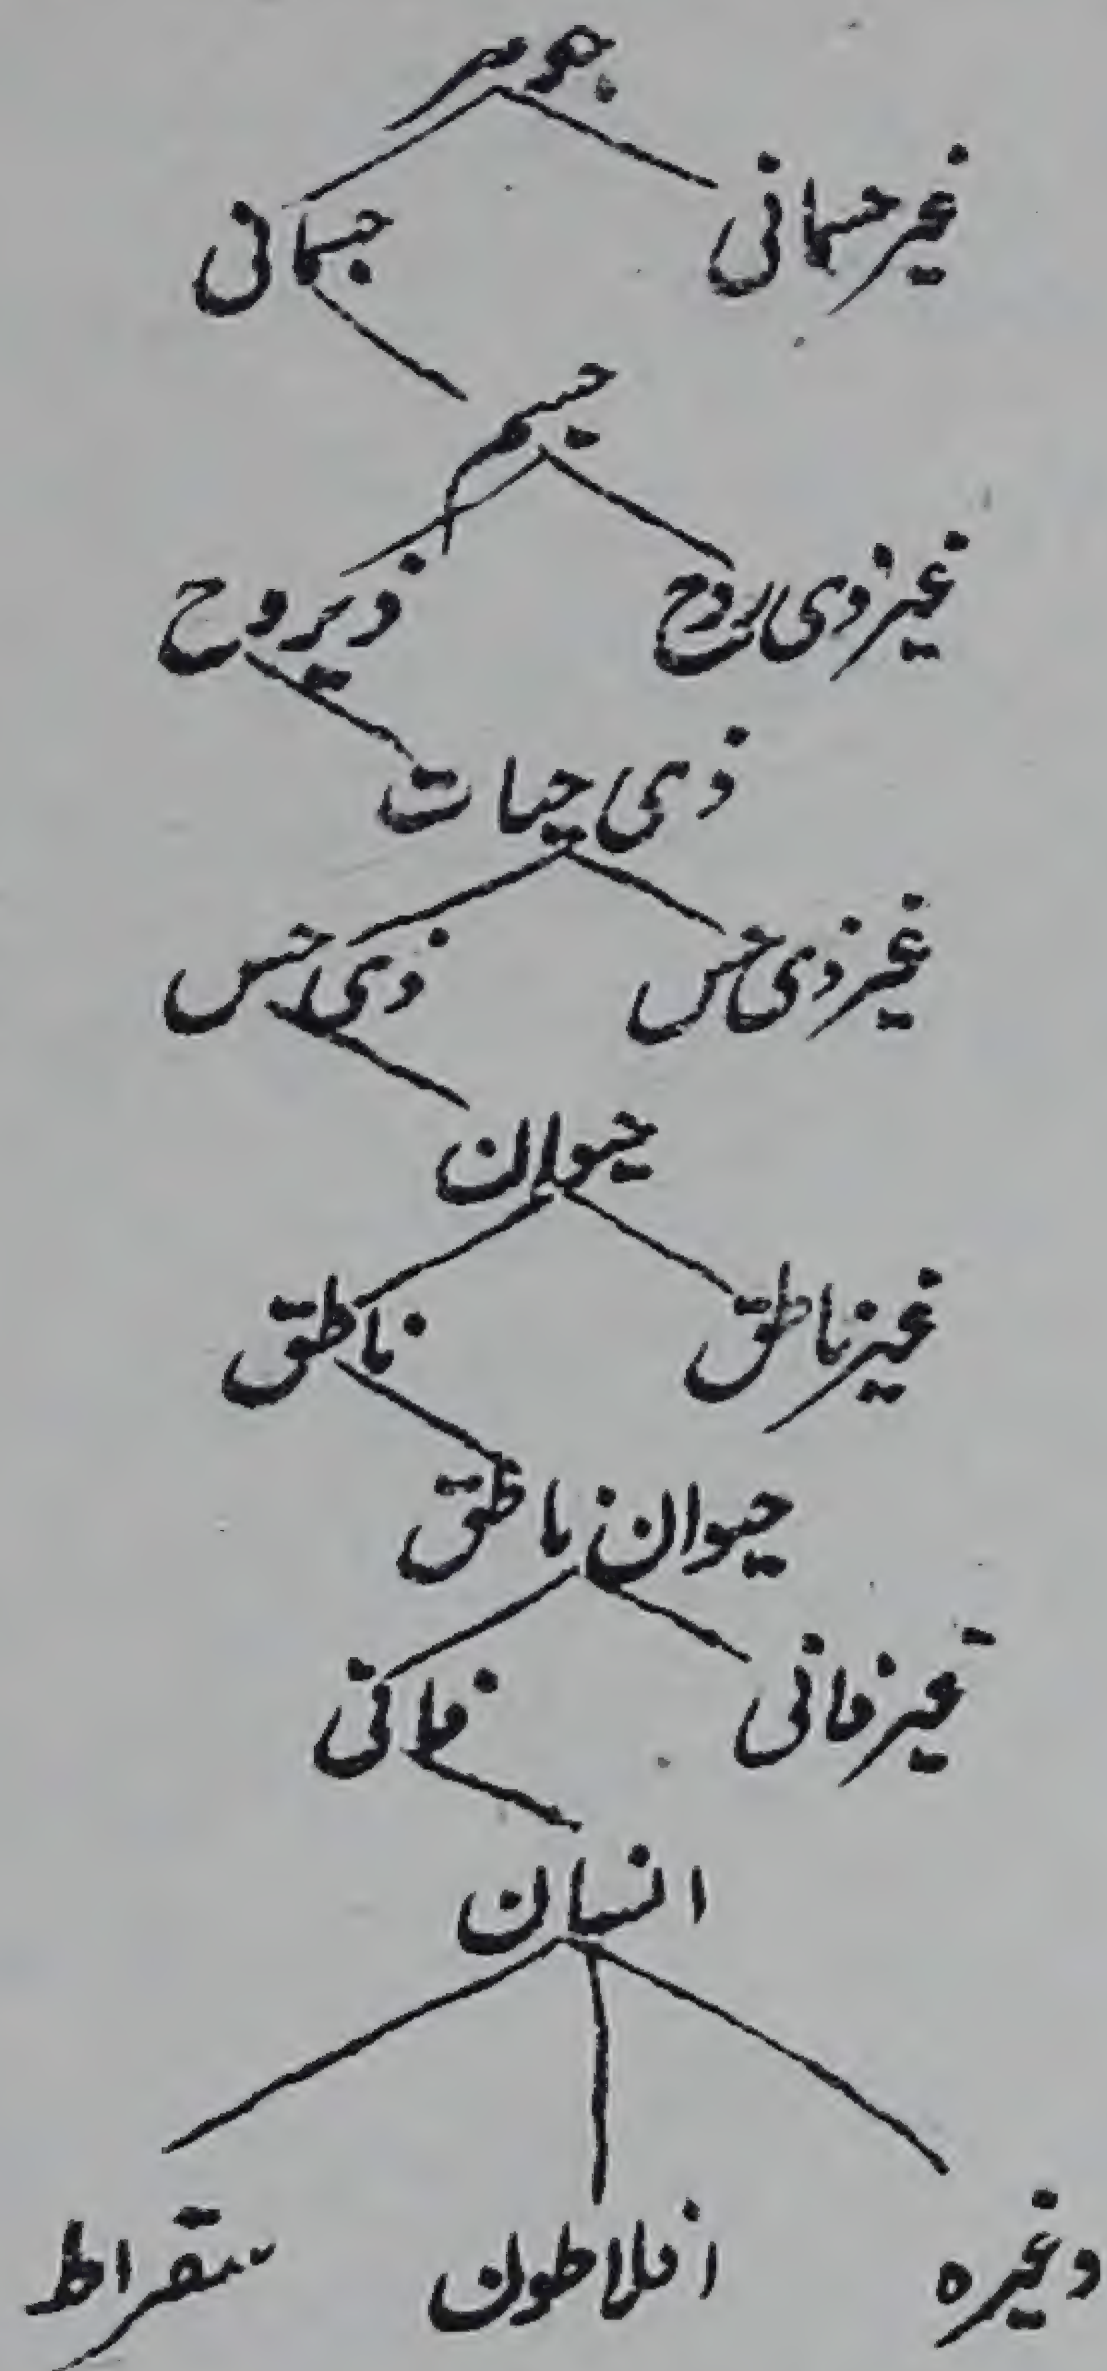 جوہر
غیر جسمانی جسمانی
جسم
غیر ذی روح ذیروح
ذی حیات
غیر ذی حس ذی حس
حیوان
غیر ناطق ناطق
حیوان ناطق
غیر فانی فانی
انسان
سقراط افلاطون وغیرہ